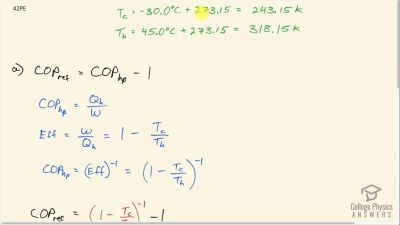 42PE
T_c = -30.0°C + 273.15 = 243.15 K
T_h = 45.0°C + 273.15 = 318.15 K
a) COP_ref = COP_hp - 1
COP_hp = Q_h/W
Eff = W/Q_h = 1 - T_c/T_h
COP_hp = (Eff)^-1 = (1 - T_c/T_h)^-1
COP_ref = (1 - T_c/T_h)^-1 - 1
College Physics
ANSWERS